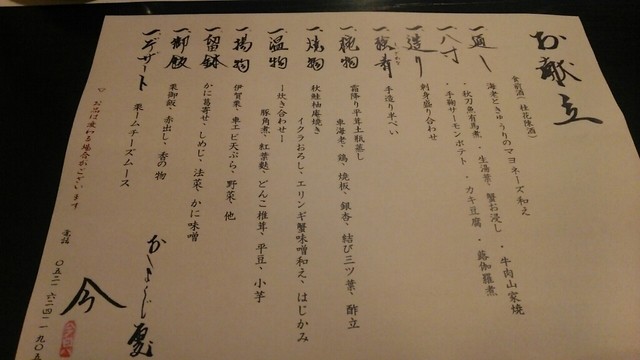 お献立
食前酒（桂花陳酒）
一、通し
海老ときゅうりのマヨネーズ和え
一、八寸
・秋刀魚有馬煮・生湯葉、蟹お浸し・牛肉山家焼
・手鞠サーモンポテト・カキ豆腐・蕗伽羅煮
一、造り
刺身盛り合わせ
手造り半ぺい
一、椀物
霜降り平茸土瓶蒸し
車海老、鶏、焼板、銀杏、結び三ツ葉、酢立
一、焼物
秋鮭柚庵焼き
イクラおろし、エリンギ蟹味噌和え、はじかみ
一、温物
ー炊き合わせー
豚角煮、紅葉麩、どんこ椎茸、平豆、小芋
一、揚物
伊賀栗、車エビ天ぷら、野菜、他
一、留鉢
かに葛寄せ、しめじ、法菜、かに味噌
一、御飯
栗御飯、赤出し、香の物
一、デザート
栗ームチーズムース
♡お品は変わる場合がございます
今
電話 〇五二ー六二四ー一九〇